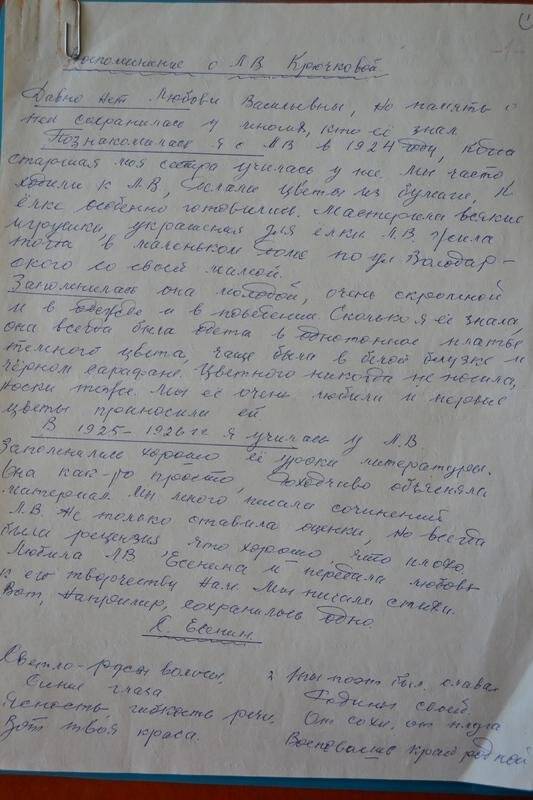 -1-
Воспоминание о Л В Крючковой.
Давно нет Любови Васильевны, но память о
ней сохранилась у многих, кто её знал
Познакомилась я с Л В в 1924 году, когда
старшая моя сестра училась у нее. Мы часто
ходили к Л В, делали цветы из бумаги, к
ёлке особенно готовились. Мастерили всякие
игрушки, украшения для ёлки Л.В. жила
тогда в маленьком доме по ул Володар-
ского со своей мамой.
Запомнилась она молодой, очень скромной
и в одежде и в поведении. Сколько я её знала,
она всегда была одета в однотонное платье
темного цвета, чаще была в белой блузке и
чёрном сарафане. Цветного никогда не носила,
носки тоже. Мы её очень любили и первые
цветы приносили ей
В 1925-1926 гг я училась у Л.В.
Запомнились хорошо её уроки литературы.
Она как-то просто, доходчиво объясняла
материал. Мы много писали сочинений
Л.В. не только ставила оценки, но всегда
были рецензия, что хорошо, что плохо.
Любила ЛВ Есенина и передала любовь
к его творчеству нам. Мы писали стихи.
Вот, например, сохранилось одно.
С. Есенин
Светло-русы волосы,
Синие глаза
Ясность, гибкость речи,
Вот твоя краса.
2 Ты поэт был, слава
Родины своей
От сохи, от плуга
Воспевавший край родной